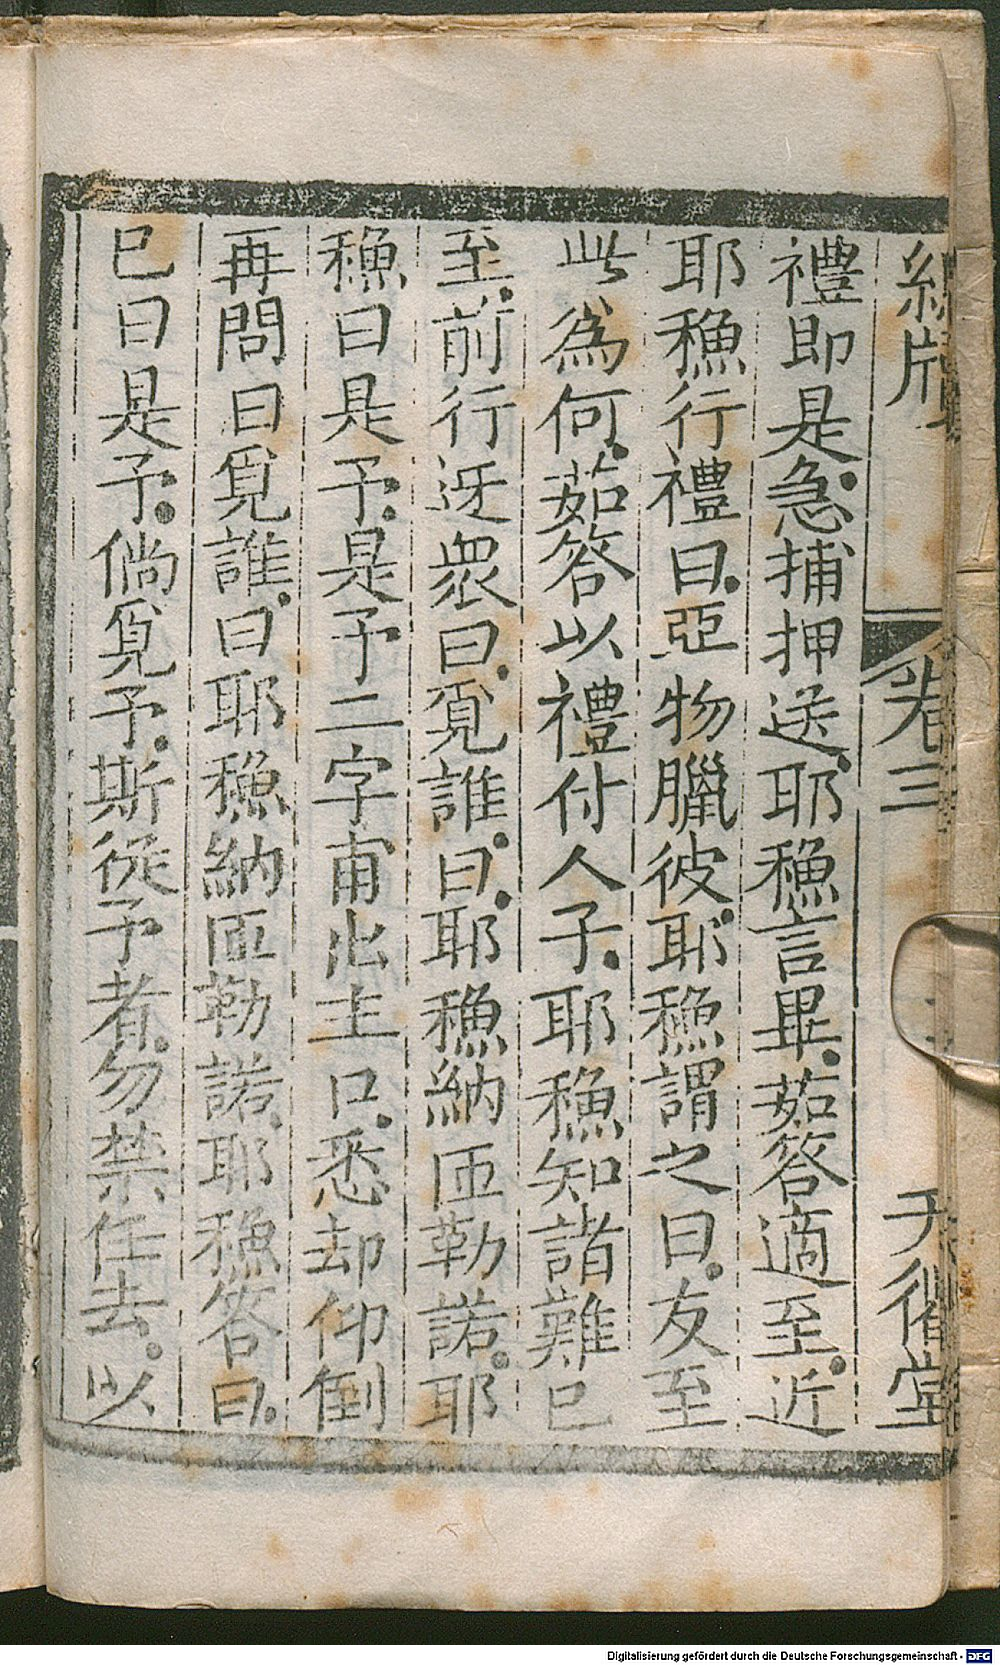 卷三
禮即是急捕押送耶穌言畢茹答適至近
耶穌行禮曰亞物臘彼耶穌謂之曰友至
此為何茹答以禮付人子耶穌知諸難已
至前行迓衆曰覓誰曰耶穌納匝勒諾耶
穌曰是予是予二字甫出主口悉却仰倒
再問曰覓誰曰耶穌納匝勒諾耶穌答曰
已曰是予倘覓予斯從予者勿禁任去以
Digitalisierung gefördert durch die Deutsche Forschungsgemeinschaft - DFG